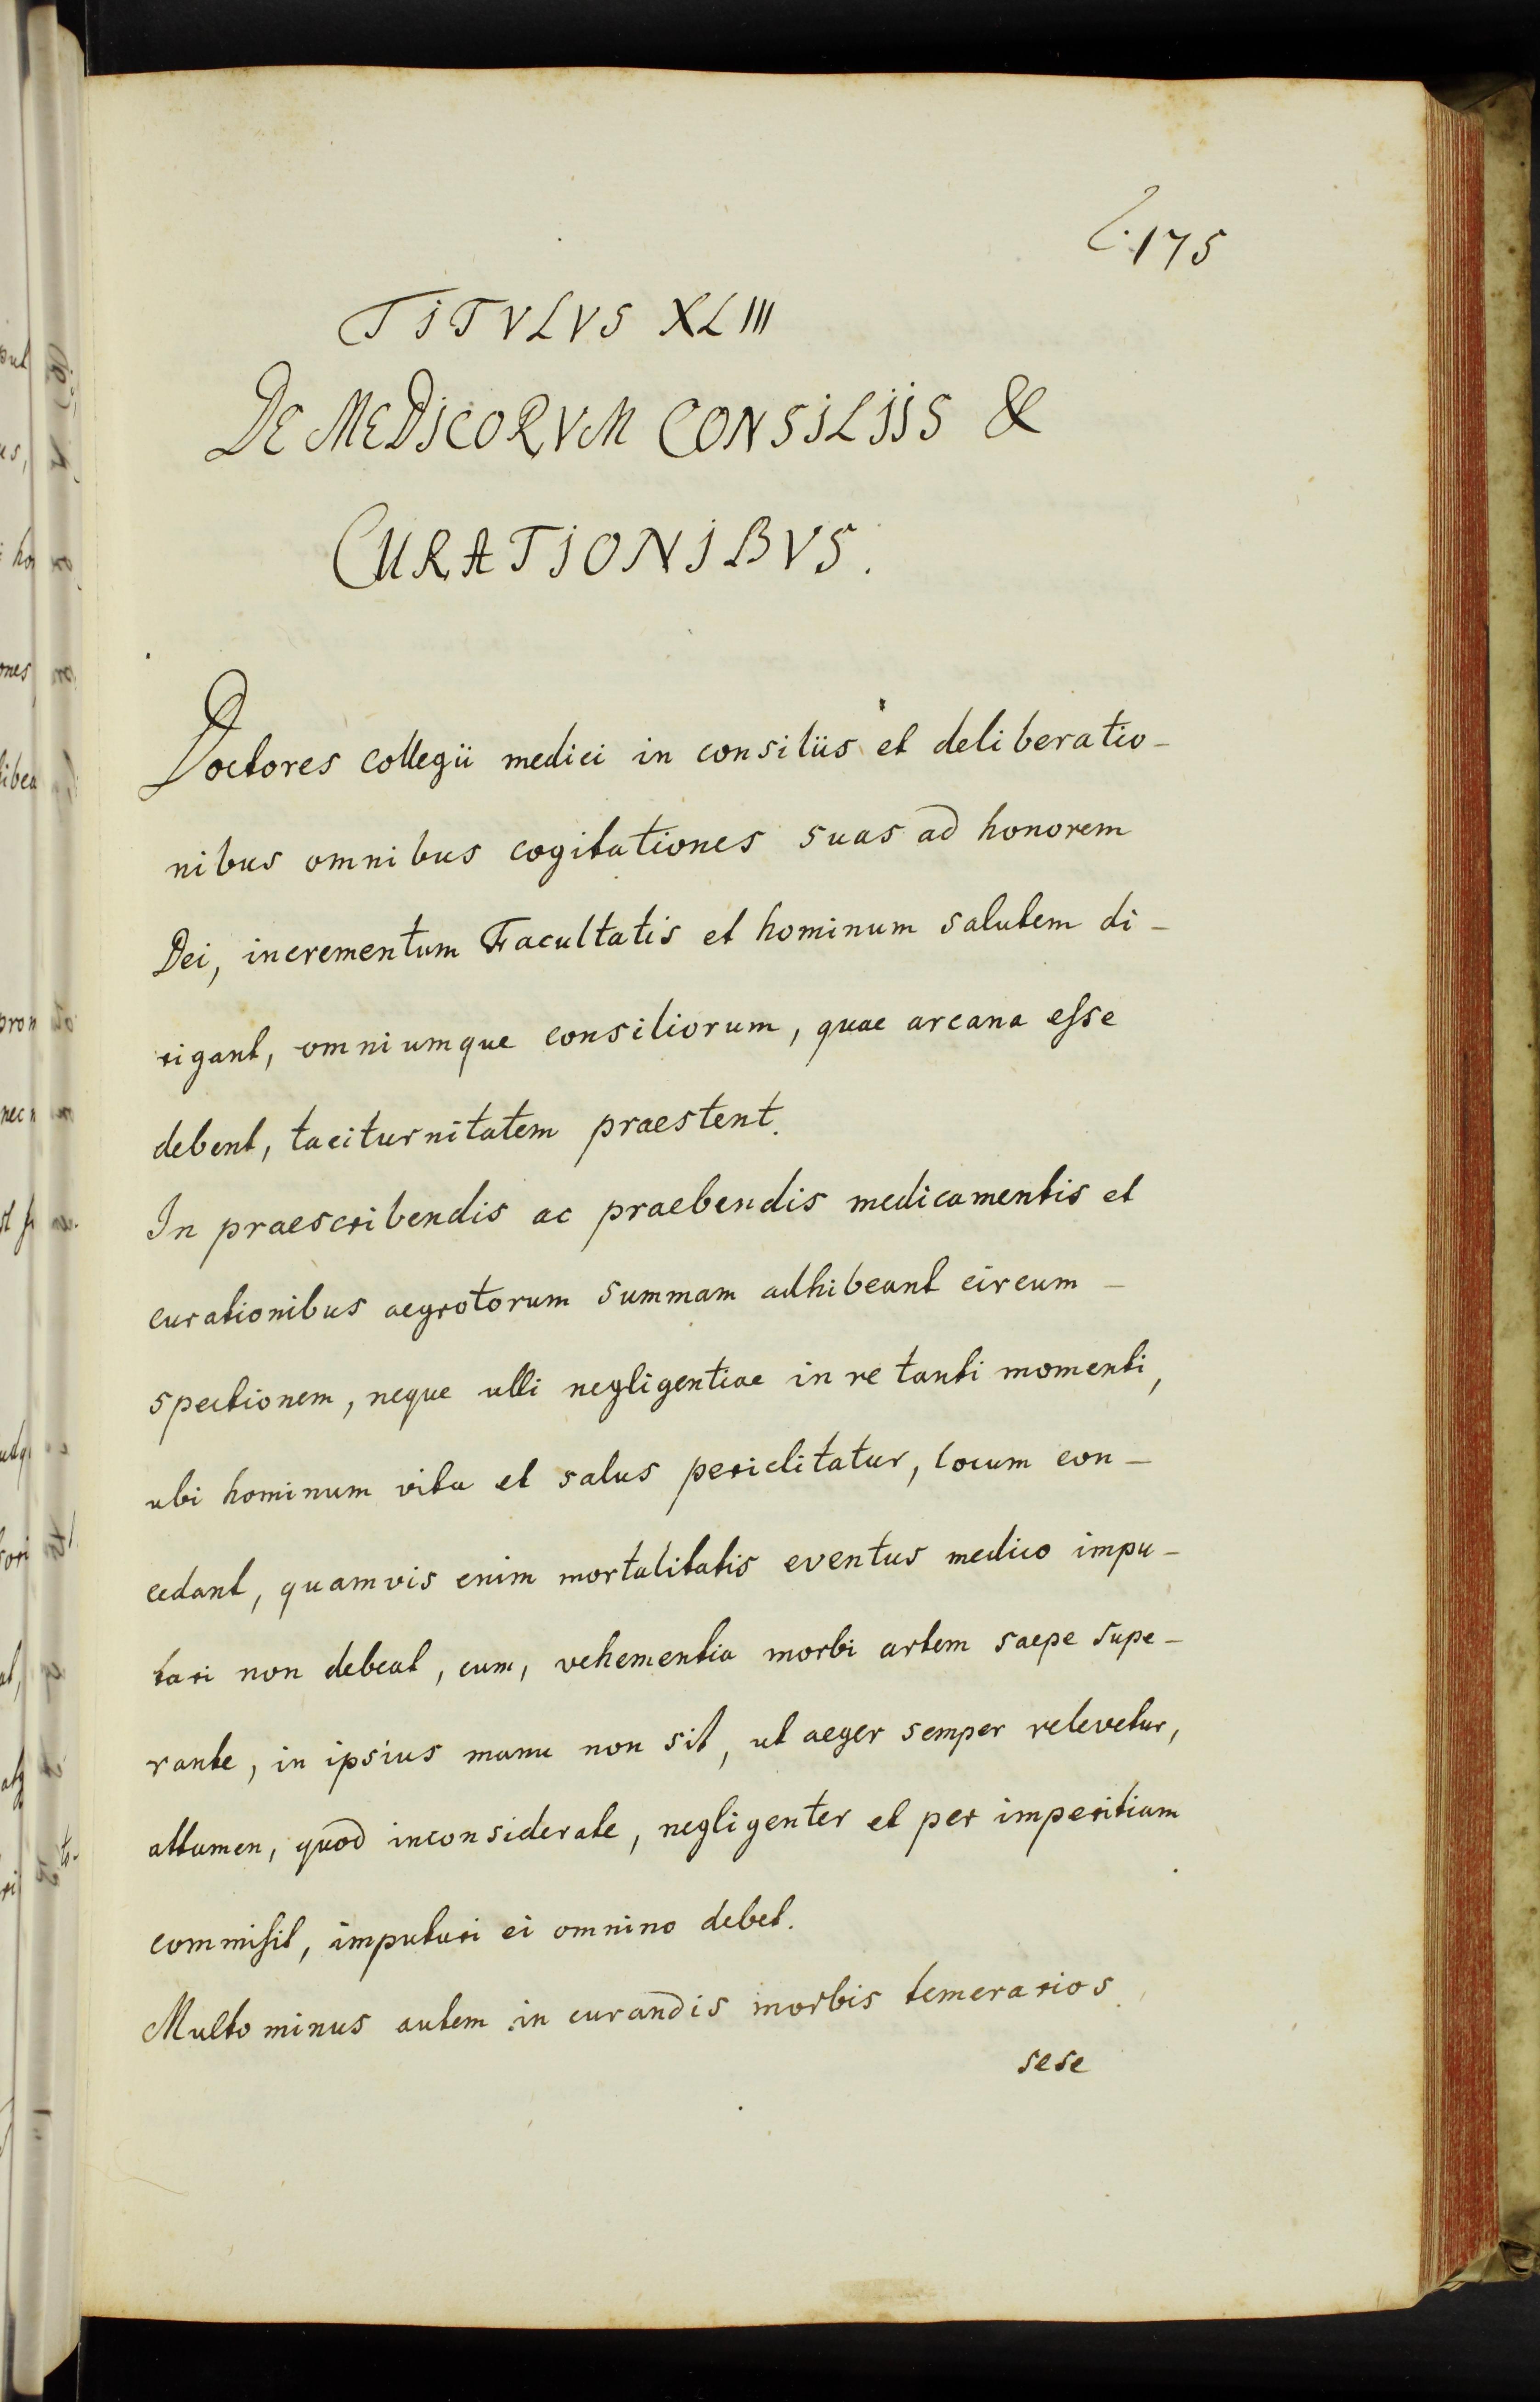 L. 175
TITVLVS XLIII
DE MEDICORVM CONSILIIS &
CURATIONIBVS.
Doctores collegii medici in consiliis et deliberatio-
nibus omnibus cogitationes suas ad honorem
Dei, incrementum Facultatis et hominum salutem di-
rigant, omniumque consiliorum, quae arcana esse
debent, taciturnitatem praestent.
In praescribendis ac praebendis medicamentis et
curationibus aegrotorum summam adhibeant circum-
spectionem, neque ulli negligentiae in re tanti momenti,
ubi hominum vita et salus periclitatur, locum con-
cedant, quamvis enim mortalitatis eventus medico impu-
tari non debeat, cum, vehementia morbi artem saepe supe-
rante, in ipsius manu non sit, ut aeger semper relevetur,
attamen, quod inconsiderate, negligenter et per imperitiam
commisit, imputari ei omnino debet.
Multo minus autem in curandis morbis temerarios
sese